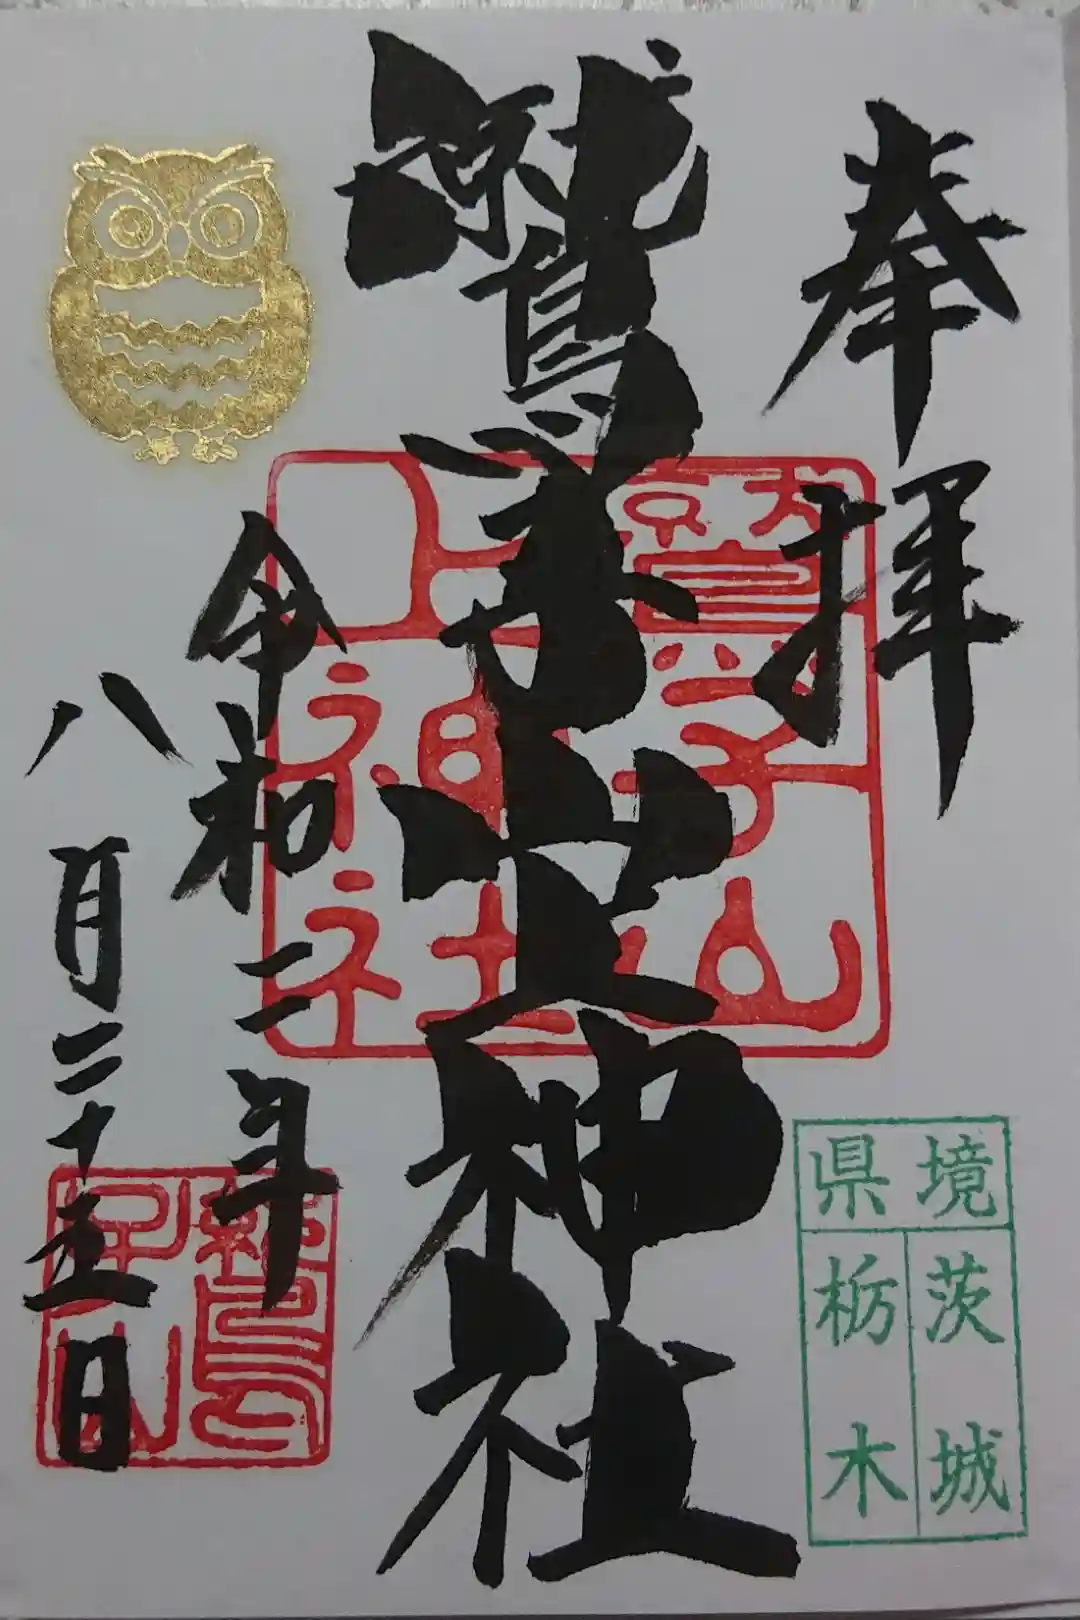 奉拝
鷲子山上神社
令和二年
八月二十五日
鷲子山
上神社
県境
茨城
栃木